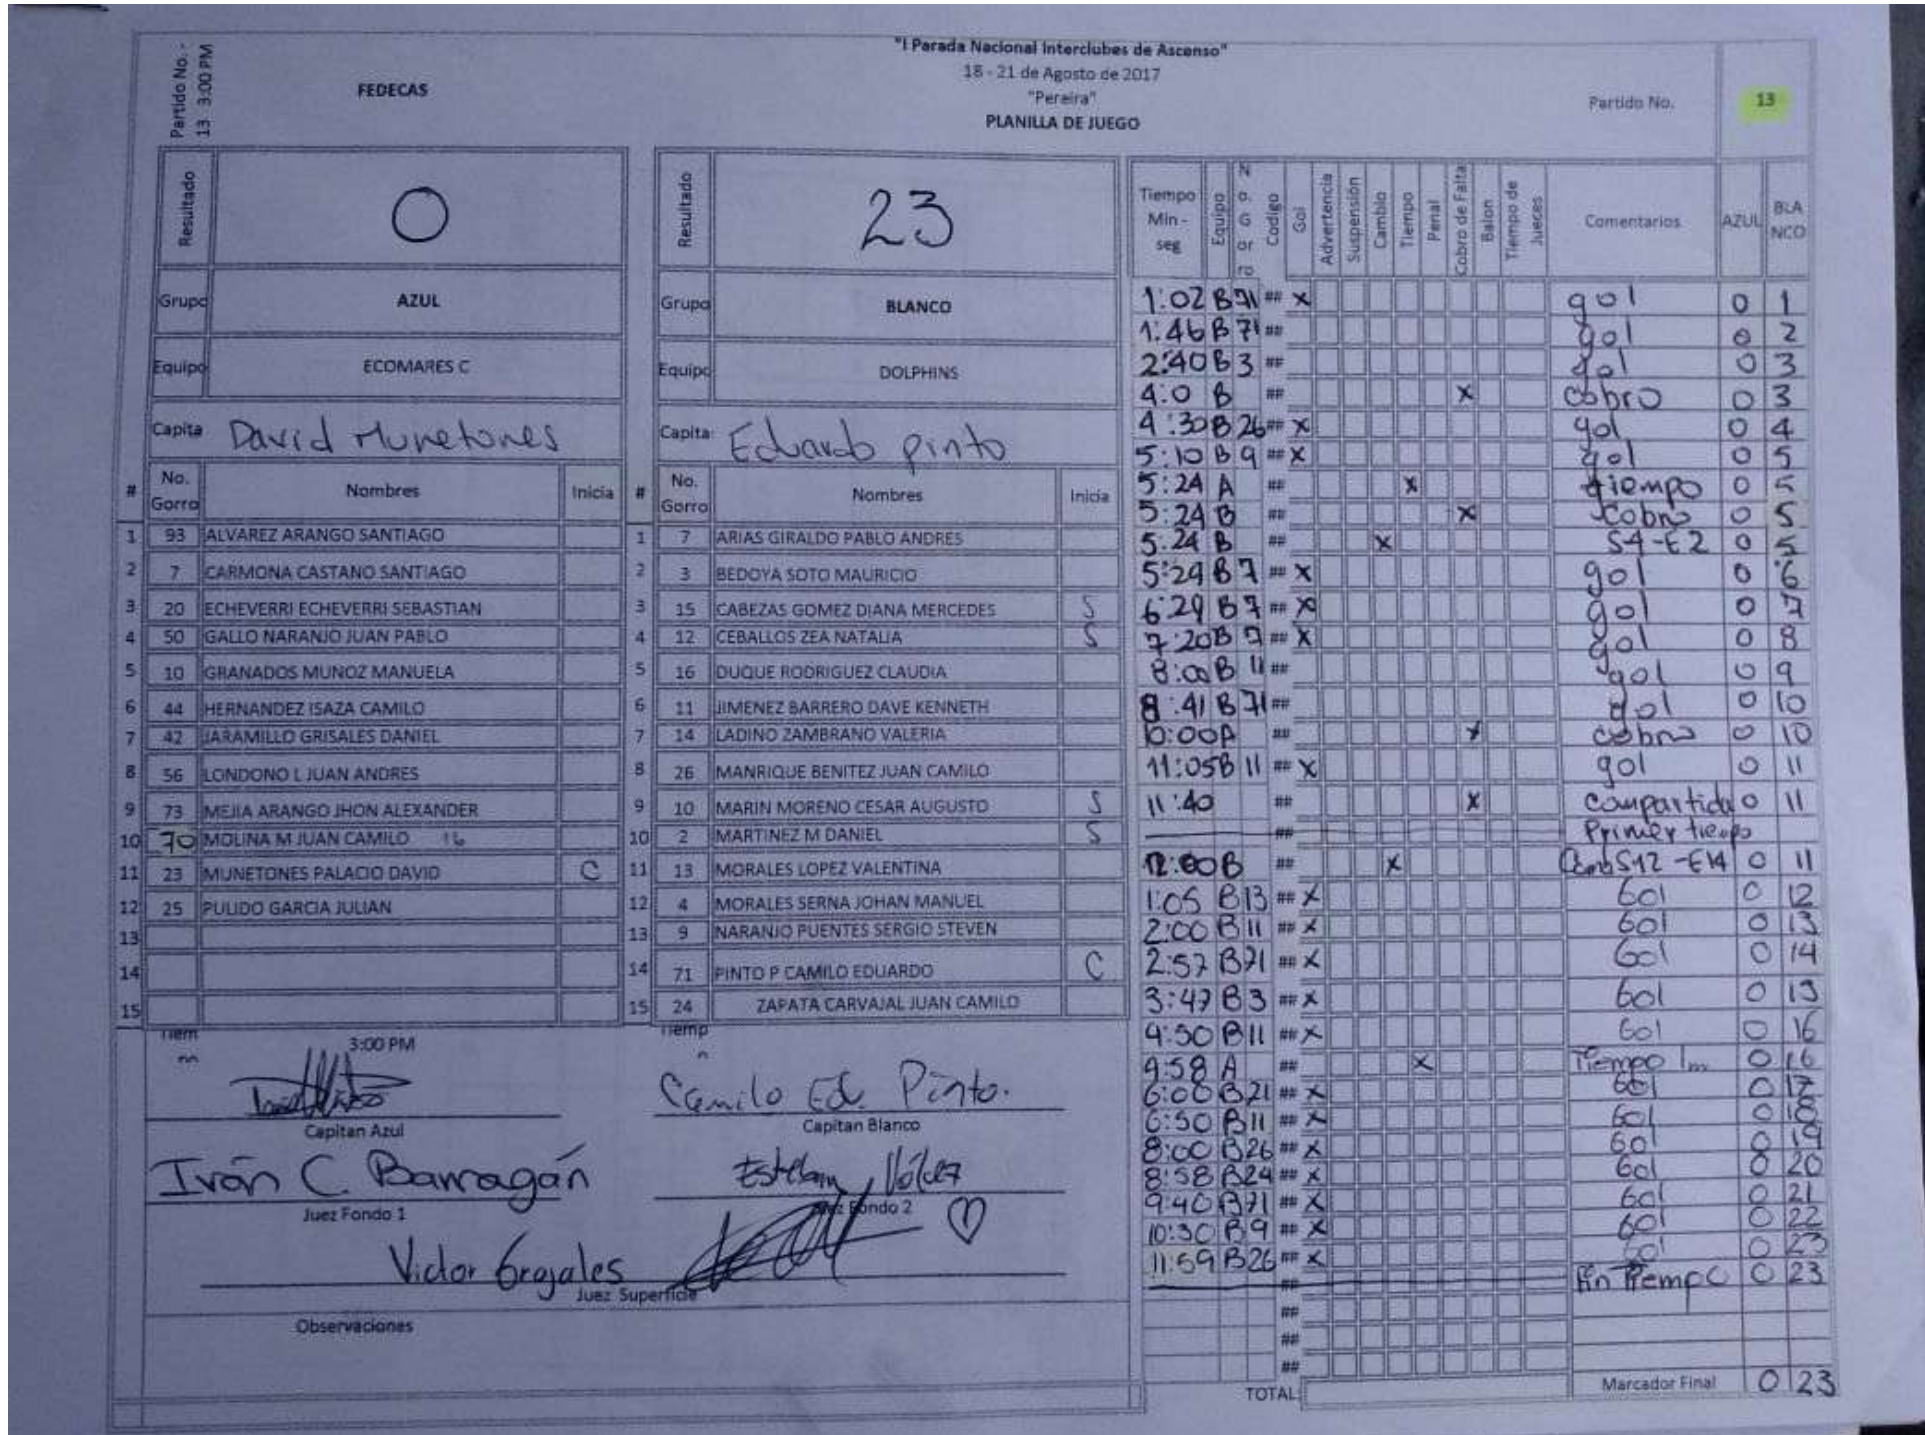 "I Parada Nacional Interclubes de Ascenso"
18 - 21 de Agosto de 2017
"Pereira"
PLANILLA DE JUEGO
Partido No. -
13 3:00 PM
FEDECAS
Partido No. 13
Resultado 0
Grupo AZUL
Equipo ECOMARES C
Capita David Munetones
# No. Gorro Nombres Inicia
1 93 ALVAREZ ARANGO SANTIAGO
2 7 CARMONA CASTANO SANTIAGO
3 20 ECHEVERRI ECHEVERRI SEBASTIAN
4 50 GALLO NARANJO JUAN PABLO
5 10 GRANADOS MUNOZ MANUELA
6 44 HERNANDEZ ISAZA CAMILO
7 42 JARAMILLO GRISALES DANIEL
8 56 LONDONO L JUAN ANDRES
9 73 MEJIA ARANGO JHON ALEXANDER
10 70 MOLINA M JUAN CAMILO 16
11 23 MUNETONES PALACIO DAVID C
12 25 PULIDO GARCIA JULIAN
13
14
15
Resultado 23
Grupo BLANCO
Equipo DOLPHINS
Capita Eduardo pinto
# No. Gorro Nombres Inicia
1 7 ARIAS GIRALDO PABLO ANDRES
2 3 BEDOYA SOTO MAURICIO
3 15 CABEZAS GOMEZ DIANA MERCEDES S
4 12 CEBALLOS ZEA NATALIA S
5 16 DUQUE RODRIGUEZ CLAUDIA
6 11 JIMENEZ BARRERO DAVE KENNETH
7 14 LADINO ZAMBRANO VALERIA
8 26 MANRIQUE BENITEZ JUAN CAMILO
9 10 MARIN MORENO CESAR AUGUSTO S
10 2 MARTINEZ M DANIEL S
11 13 MORALES LOPEZ VALENTINA
12 4 MORALES SERNA JOHAN MANUEL
13 9 NARANJO PUENTES SERGIO STEVEN
14 71 PINTO P CAMILO EDUARDO C
15 24 ZAPATA CARVAJAL JUAN CAMILO
Tiempo Min - seg Equipo No. Gorro Codigo Gol Advertencia Suspensión Cambio Tiempo Penal Cobro de Falta Balon Tiempo de Jueces Comentarios AZUL BLANCO
1:02 B 71 ## X gol 0 1
1:46 B 71 ## gol 0 2
2:40 B 3 ## gol 0 3
4:0 B ## X cobro 0 3
4:30 B 26 ## X gol 0 4
5:10 B 9 ## X gol 0 5
5:24 A ## X tiempo 0 5
5:24 B ## X Cobro 0 5
5:24 B ## X S4-E2 0 5
5:29 B 7 ## X gol 0 6
6:29 B 7 ## X gol 0 7
7:20 B 7 ## X gol 0 8
8:00 B 11 ## gol 0 9
8:41 B 71 ## gol 0 10
10:00 A ## X cobro 0 10
11:05 B 11 ## X gol 0 11
11:40 ## X compartida 0 11
## Primer tiempo
12:00 B ## X S12 -E14 0 11
1:05 B 13 ## X Gol 0 12
2:00 B 11 ## X Gol 0 13
2:57 B 71 ## X Gol 0 14
3:47 B 3 ## X Gol 0 15
4:50 B 11 ## X Gol 0 16
A ## X Tiempo 0 16
6:00 B 21 ## X Gol 0 17
6:50 B 11 ## X Gol 0 18
8:00 B 26 ## X Gol 0 19
8:58 B 24 ## X Gol 0 20
9:40 B 71 ## X Gol 0 21
10:30 B 9 ## X Gol 0 22
11:59 B 26 ## X Gol 0 23
## Fin Tiempo 0 23
##
##
##
TOTAL
Marcador Final 0 23
Tiem
no
3:00 PM
Tiemp
o
Camilo Ed. Pinto.
Capitan Azul
Capitan Blanco
Iván C. Barragán
Juez Fondo 1
Juez Fondo 2
Victor Grajales
Juez Superficie
Observaciones